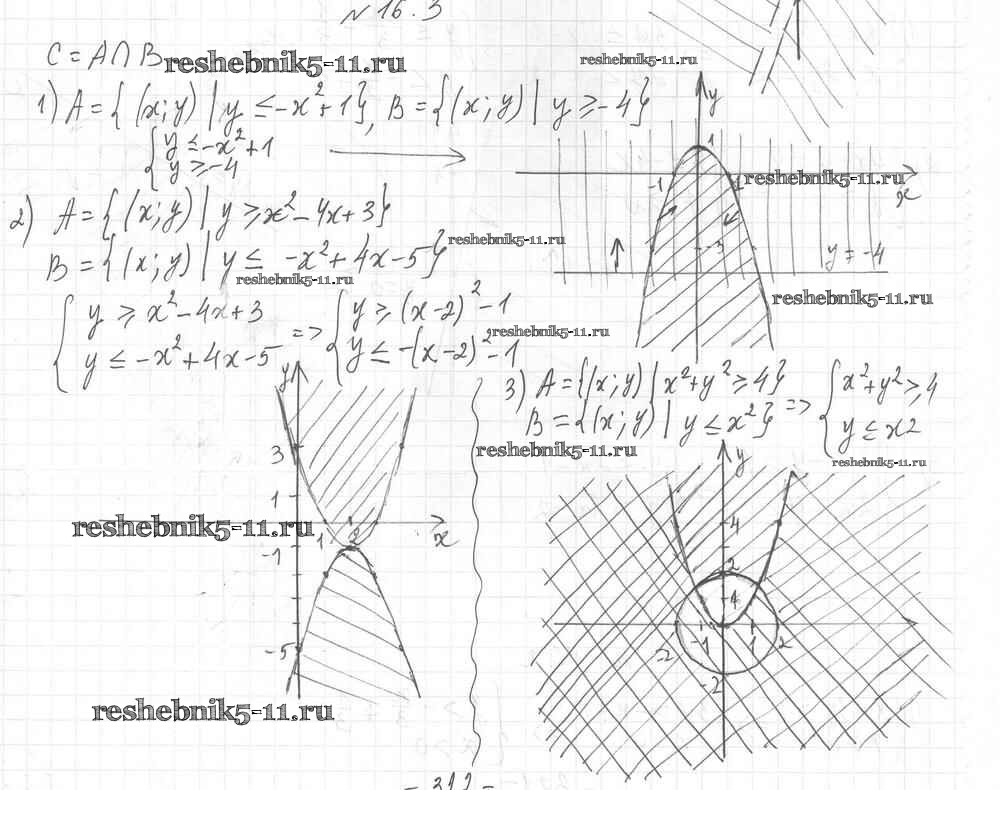 N 16.3
C = A ∩ B
reshebnik5-11.ru
reshebnik5-11.ru
1) A = { (x; y) | y ≤ -x² + 1 }, B = { (x; y) | y ≥ -4 }
{ y ≤ -x² + 1
y ≥ -4
y
1
-1
1
reshebnik5-11.ru
x
-3
y = -4
reshebnik5-11.ru
2) A = { (x; y) | y ≥ x² - 4x + 3 }
reshebnik5-11.ru
B = { (x; y) | y ≤ -x² + 4x - 5 }
reshebnik5-11.ru
{ y ≥ x² - 4x + 3
y ≤ -x² + 4x - 5
=> { y ≥ (x-2)² - 1
reshebnik5-11.ru
y ≤ -(x-2)² - 1
y
3
1
reshebnik5-11.ru
1
2
x
-1
-5
reshebnik5-11.ru
3) A = { (x; y) | x² + y² ≥ 4 }
B = { (x; y) | y ≤ x² }
=> { x² + y² ≥ 4
y ≤ x2
reshebnik5-11.ru
reshebnik5-11.ru
y
4
2
-2
-1
1
2
-2
- 312 -